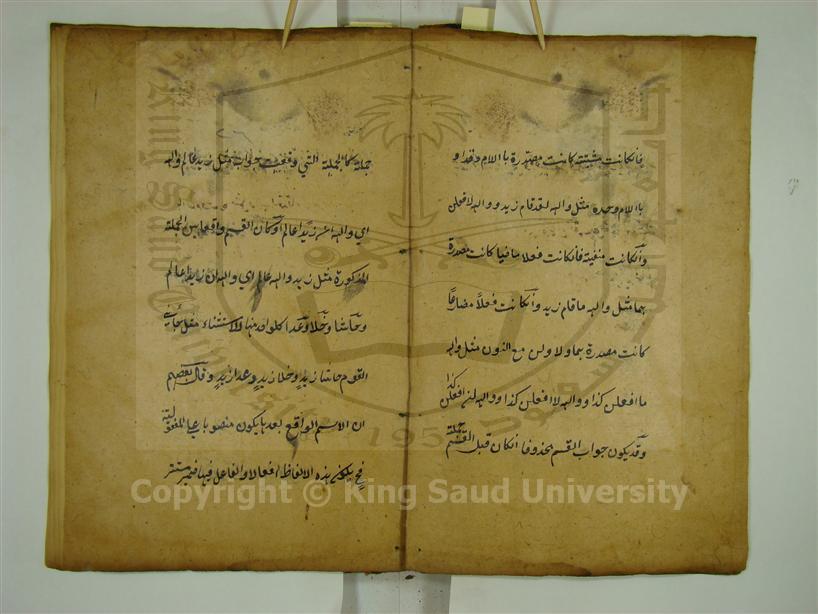 فانكانت مثبتة كانت مصدرة باللام وقد او
باللام وحده مثل والله لقد قام زيد ووالله لافعلن
وانكانت منفية فانكانت فعلا ماضيا كانت مصدرة
بما مثل والله ما قام زيد وانكانت فعلا مضارعا
كانت مصدرة بما ولا ولن مع النون مثل والله
ما افعلن كذا ووالله لا افعلن كذا ووالله لن افعلن كذا
وقد يكون جواب القسم محذوفا انكان قبل القسم جملة
جملة كالجملة التي وقعت جوابه مثل زيد عالم والله
اي والله ان زيدا عالم او كان القسم واقعا بين الجملة
المذكورة مثل زيد والله عالم اي والله ان زيدا عالم
وحاشا وخلا وعدا كلواحد منها للاستثناء مثل جاءني
القوم حاشا زيد وخلا زيد وعدا زيد وقال بعضهم
ان الاسم الواقع بعدها يكون منصوبا على المفعولية
فح يكون هذه الالفاظ افعالا والفاعل فيها ضمير مستتر
Copyright © King Saud University
King Saud University
1957